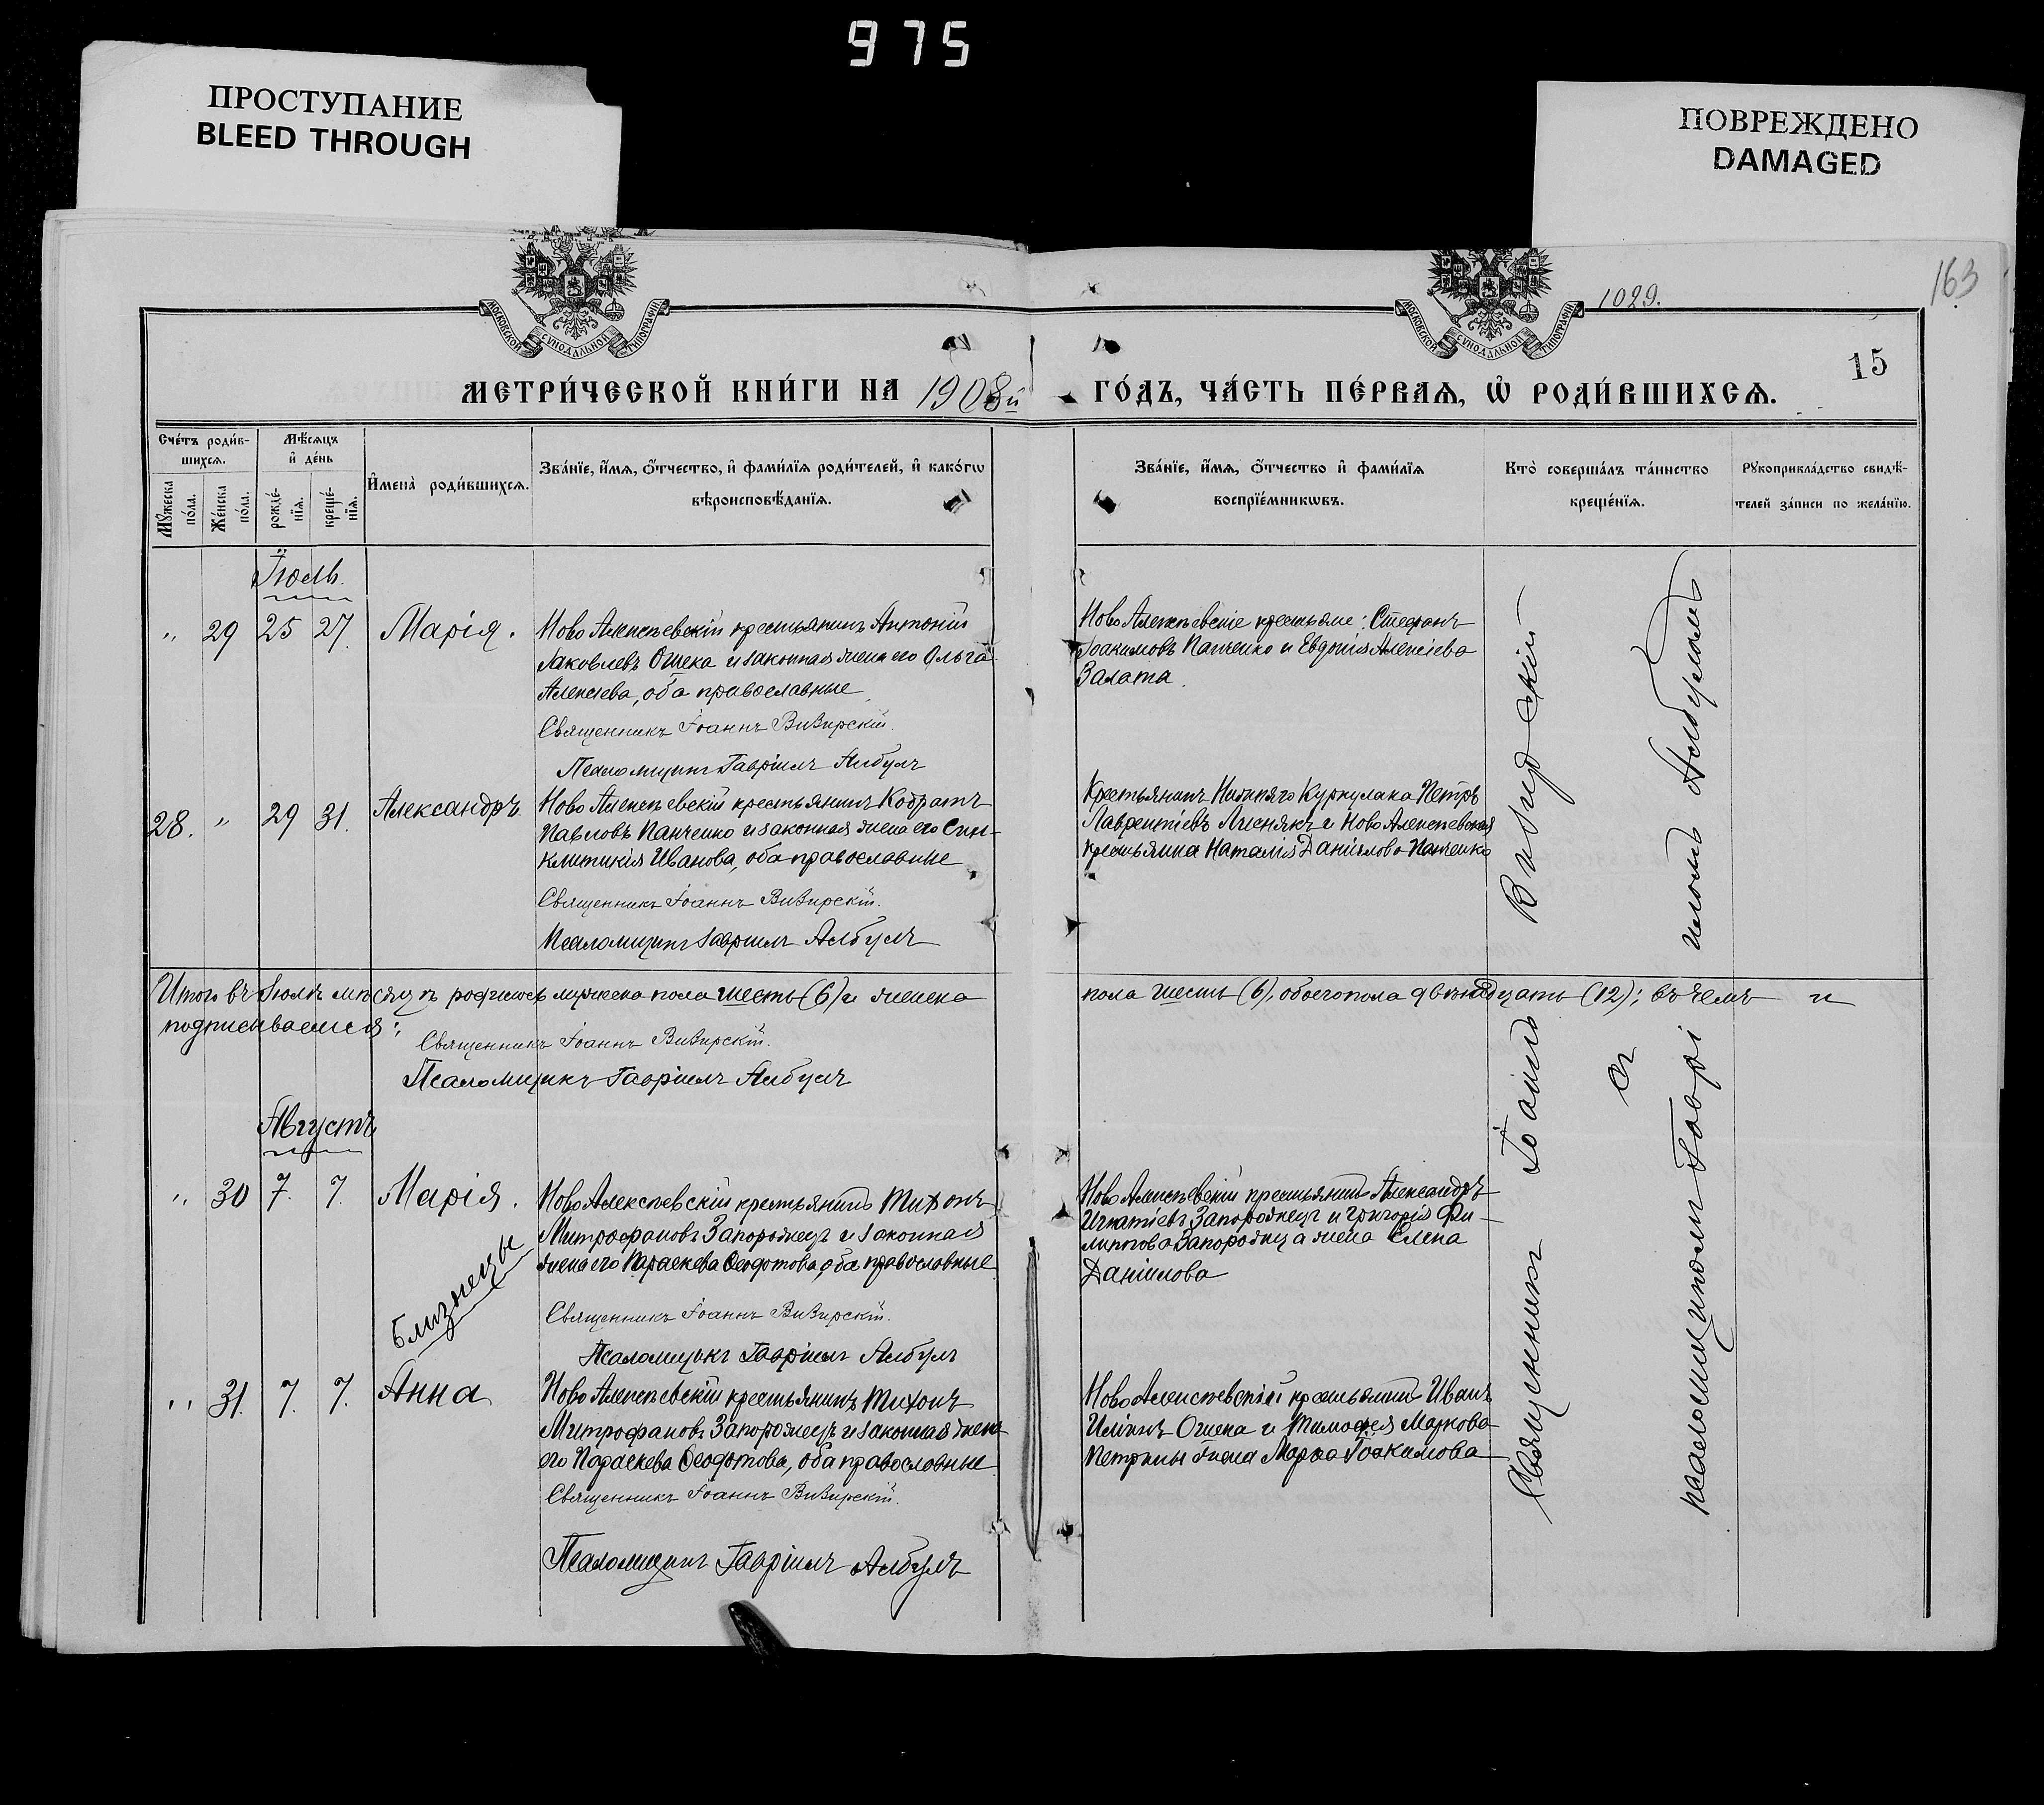 975
ПРОСТУПАНИЕ
BLEED THROUGH
ПОВРЕЖДЕНО
DAMAGED
163
1029.
15
МОСКОВСКОЙ СѴНОДАЛЬНОЙ ТИПОГРАФІИ
МОСКОВСКОЙ СѴНОДАЛЬНОЙ ТИПОГРАФІИ
МЕТРИ́ЧЕСКОЙ КНИ́ГИ НА 1908й ГО́ДЪ, ЧА́СТЬ ПЕ́РВАЯ, Ѡ РОДИ́ВШИХСЯ.
Сче́тъ роди́в-
шихся.
Мѣ́сяцъ
и҆ де́нь
Мꙋ́жеска по́ла.
Же́нска по́ла.
рожде́-
нїя.
креще́-
нїя.
И҆мена̀ роди́вшихся.
Зва́нїе, и҆́мя, ѻ҆́тчество, и҆ фами́лїя роди́телей, и҆ како́гѡ
вѣроисповѣ́данїя.
Зва́нїе, и҆́мя, ѻ҆́тчество и҆ фами́лїя
воспрїе́мникѡвъ.
Кто̀ соверша́лъ та́инство
креще́нїя.
Рꙋкоприкла́дство свидѣ́-
телей за́писи по жела́нїю.
Іюль.
" 29 25 27. Марія.
Ново Алексѣевскій крестьянинъ Антоній
Яковлевъ Ошека и законная жена его Ольга
Алексіева, оба православные
Священникъ Іоаннъ Визирскій.
Псаломщикъ Гавріилъ Албулъ
Ново Алексѣевскіе крестьяне: Стефанъ
Іоакимовъ Панченко и Евдокія Алексіева
Залата.
28. " 29 31. Александръ
Ново Алексѣевскій крестьянинъ Кодратъ
Павловъ Панченко и законная жена его Син-
клитикія Иванова, оба православные
Священникъ Іоаннъ Визирскій.
Псаломщикъ Гавріилъ Албулъ
Крестьянинъ Нижняго Куркулака Петръ
Лаврентіевъ Лиснякъ и Ново Алексѣевская
крестьянка Наталія Даніилова Панченко
Итого въ Іюлѣ мѣсяцѣ родилось мужеска пола шесть (6) и женска
пола шесть (6), обоего пола двѣнадцать (12); въ чемъ и
подписываемся:
Священникъ Іоаннъ Визирскій.
Псаломщикъ Гавріилъ Албулъ
Августъ
" 30 7. 7. Марія.
Близнецы
Ново Алексѣевскій крестьянинъ Тихонъ
Митрофановъ Запорожецъ и законная
жена его Параскева Ѳеодотова, оба православные
Священникъ Іоаннъ Визирскій.
Псаломщикъ Гавріилъ Албулъ
Ново Алексѣевскій крестьянинъ Александръ
Игнатіевъ Запорожецъ и Григорія Фи-
липпова Запорожца жена Елена
Даніилова
" 31. 7. 7. Анна
Ново Алексѣевскій крестьянинъ Тихонъ
Митрофановъ Запорожецъ и законная жена
его Параскева Ѳеодотова, оба православные
Священникъ Іоаннъ Визирскій.
Псаломщикъ Гавріилъ Албулъ
Ново Алексѣевскій крестьянинъ Иванъ
Иліинъ Ошека и Тимоѳея Маркова
Петрины жена Марѳа Іоакимова
Священникъ Іоаннъ Визирскій
съ
псаломщикомъ Гавріиломъ Албуломъ